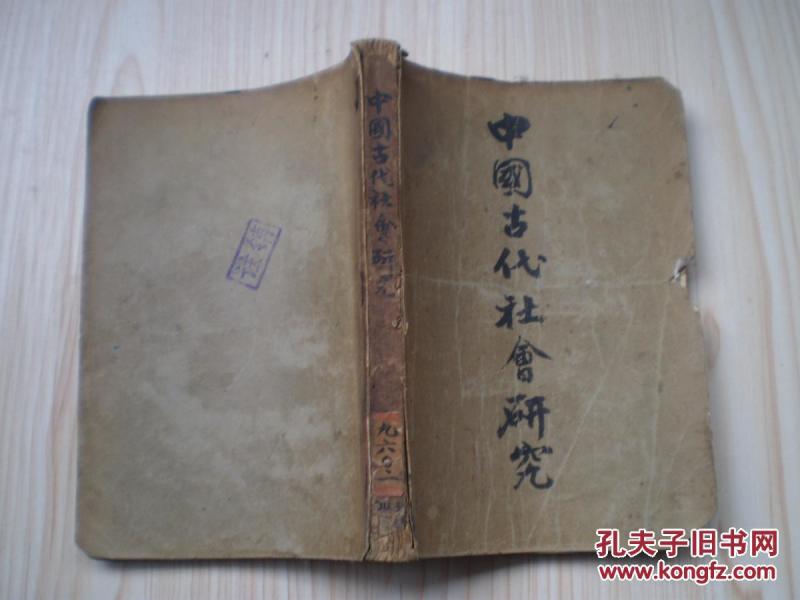 中國古代社會研究
中國古代社會研究
九六〇.一
孔夫子旧书网
www.kongfz.com